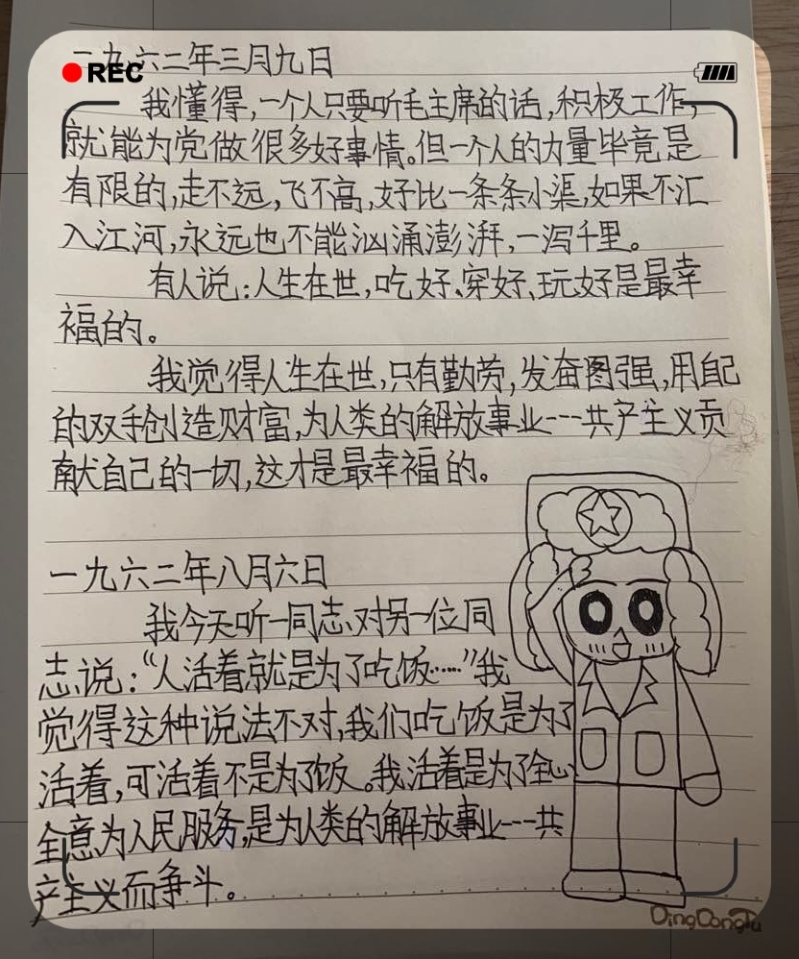 一九六二年三月九日
REC
我懂得,一个人只要听毛主席的话,积极工作,
就能为党做很多好事情。但一个人的力量毕竟是
有限的,走不远,飞不高,好比一条条小渠,如果不汇
入江河,永远也不能汹涌澎湃,一泻千里。
有人说:人生在世,吃好、穿好、玩好是最幸
福的。
我觉得人生在世,只有勤劳,发奋图强,用自己
的双手创造财富,为人类的解放事业---共产主义贡
献自己的一切,这才是最幸福的。
一九六二年八月六日
我今天听一同志对另一位同
志说:“人活着就是为了吃饭……”我
觉得这种说法不对,我们吃饭是为了
活着,可活着不是为了饭。我活着是为了全心
全意为人民服务,是为人类的解放事业---共
产主义而争斗。
DingDongTu